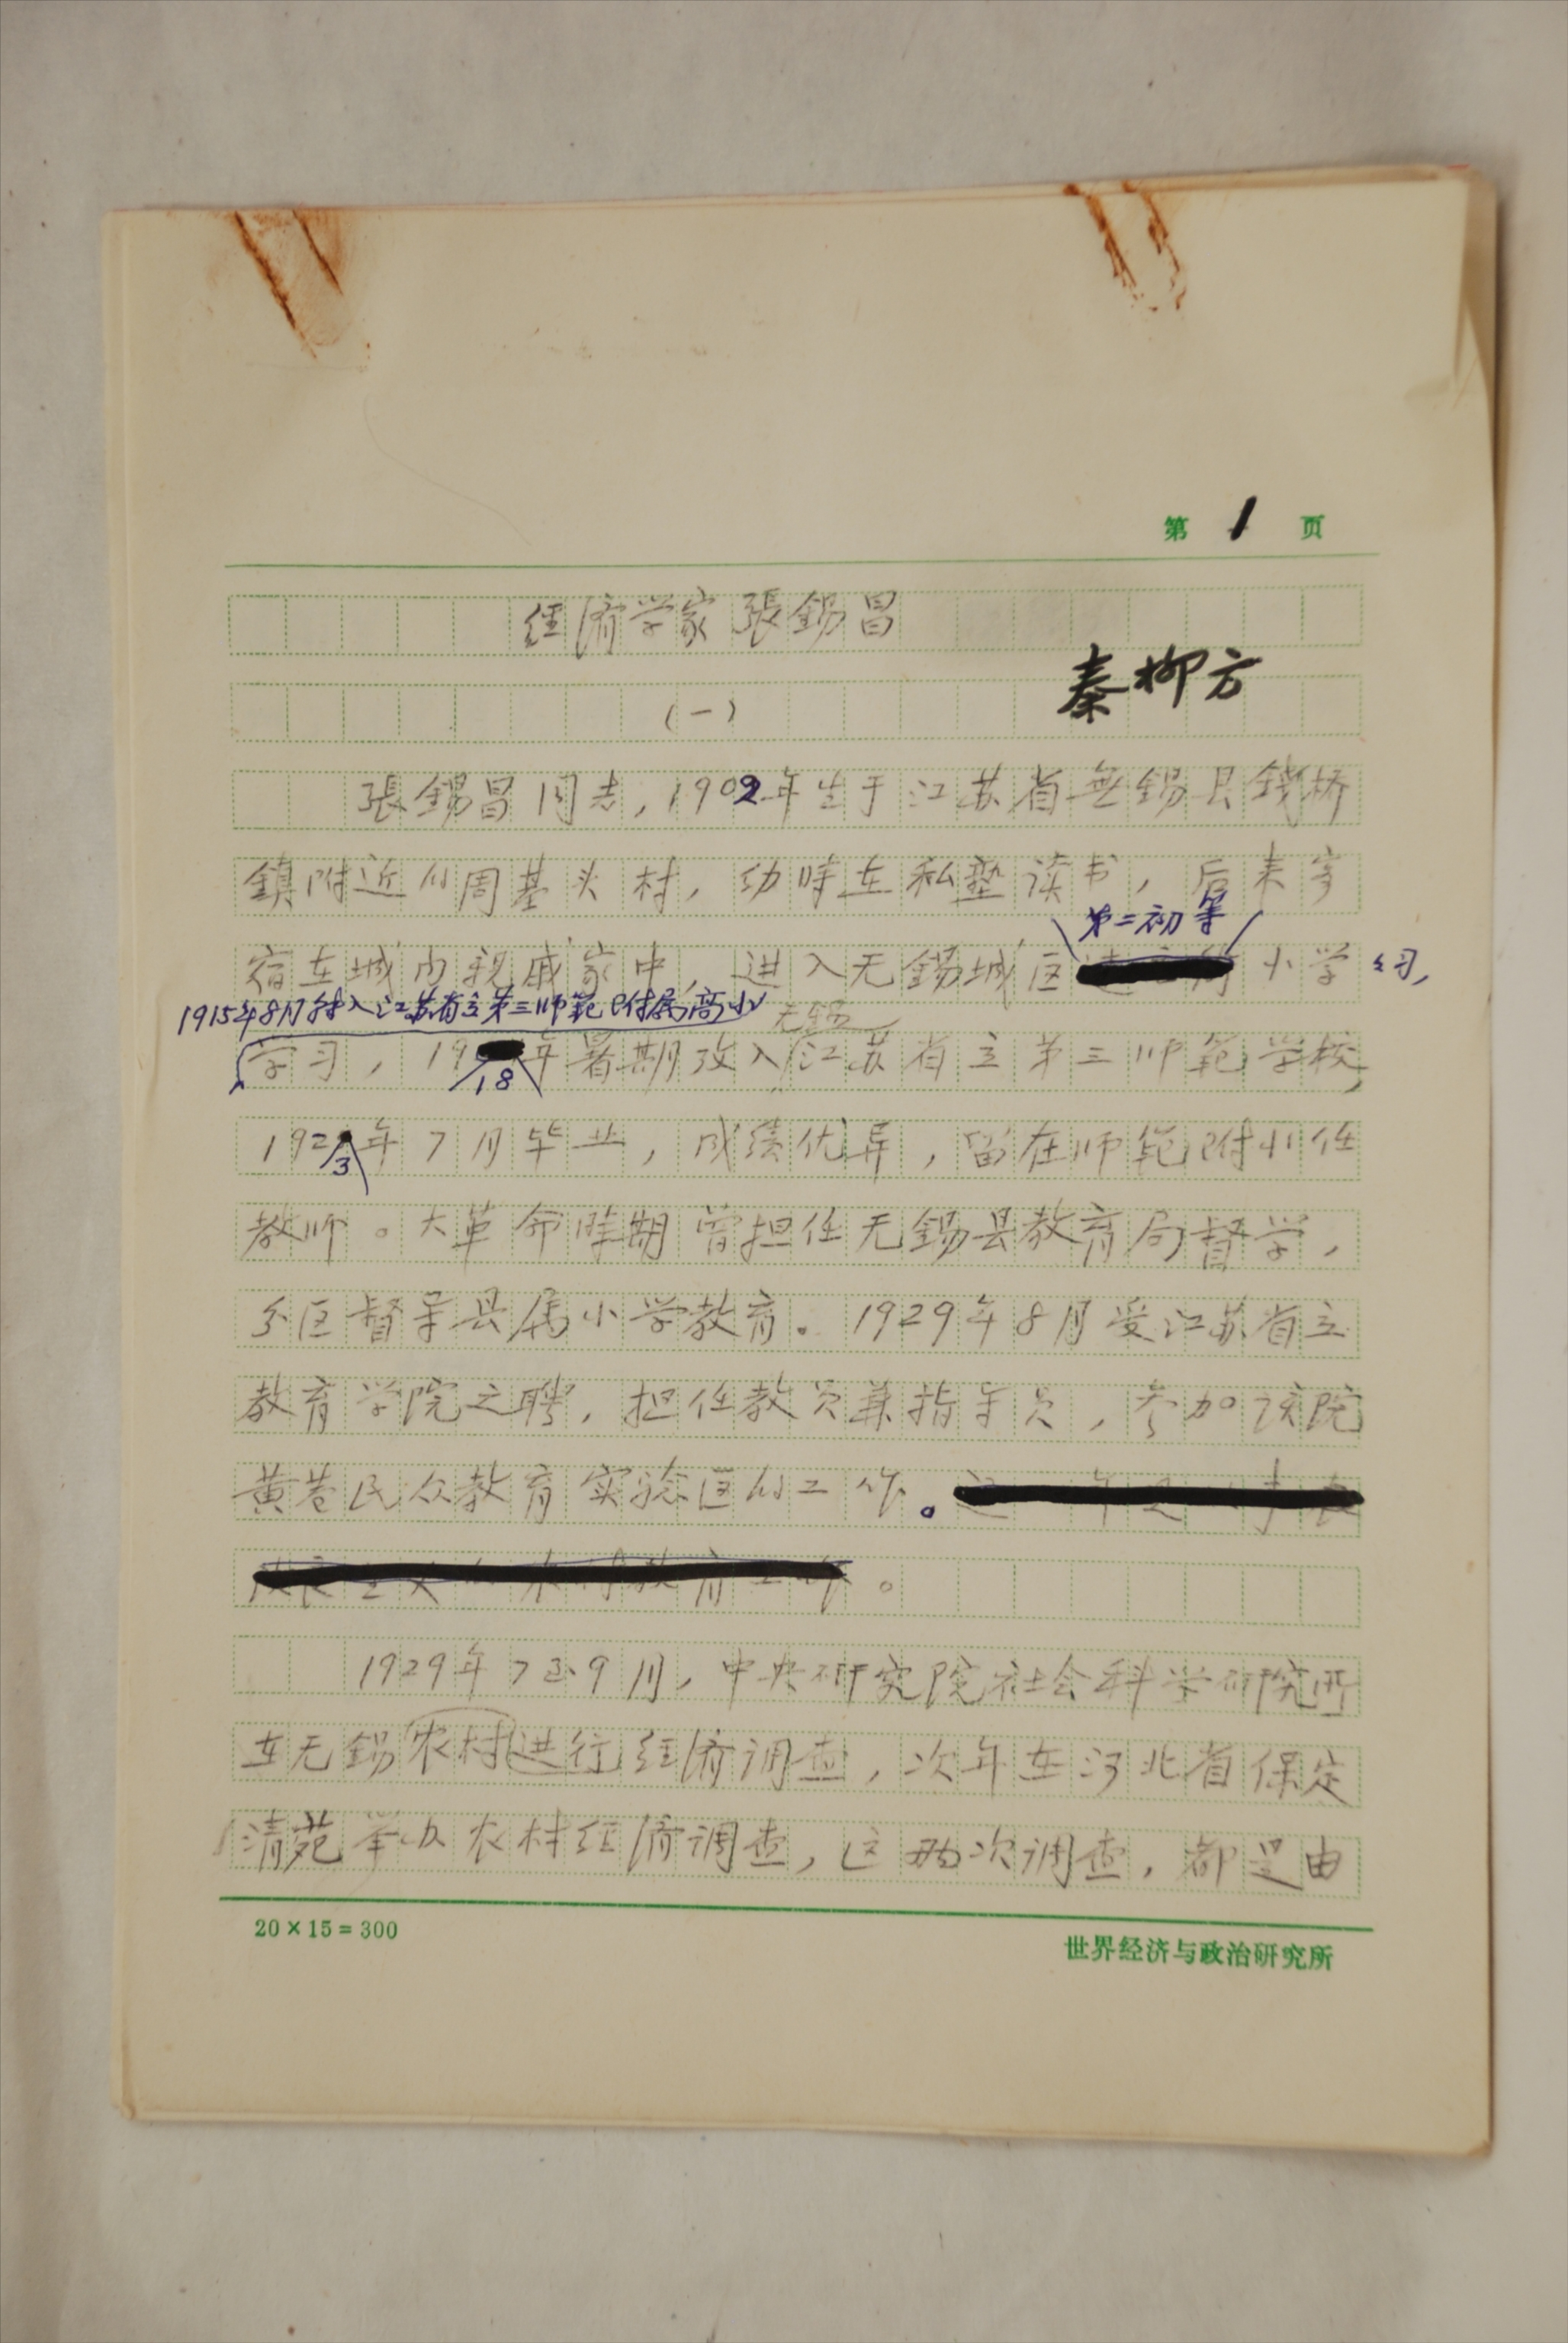 第 1 页
经济学家張錫昌
秦柳方
(一)
張錫昌同志,1902年生于江苏省無錫县錢桥
鎮附近的周基头村,幼時在私塾读书,后来寄
第二初等
宿在城内親戚家中,进入无錫城区小学 学习,
1915年8月转入江苏省立第三师範附属高小
无錫
学习,19 年暑期攻入江苏省立第三师範学校,
18
192 年7月毕业,成绩优异,留在师範附小任
3
教师。大革命時期曾担任无錫县教育局督学,
分区督导县属小学教育。1929年8月受江苏省立
教育学院之聘,担任教员兼指导员,参加该院
黄巷民众教育实验区的工作。
1929年7至9月,中央研究院社会科学研究所
在无錫农村进行经济调查,次年在河北省保定
清苑举办农村经济调查,这两次调查,都是由
20×15=300
世界经济与政治研究所